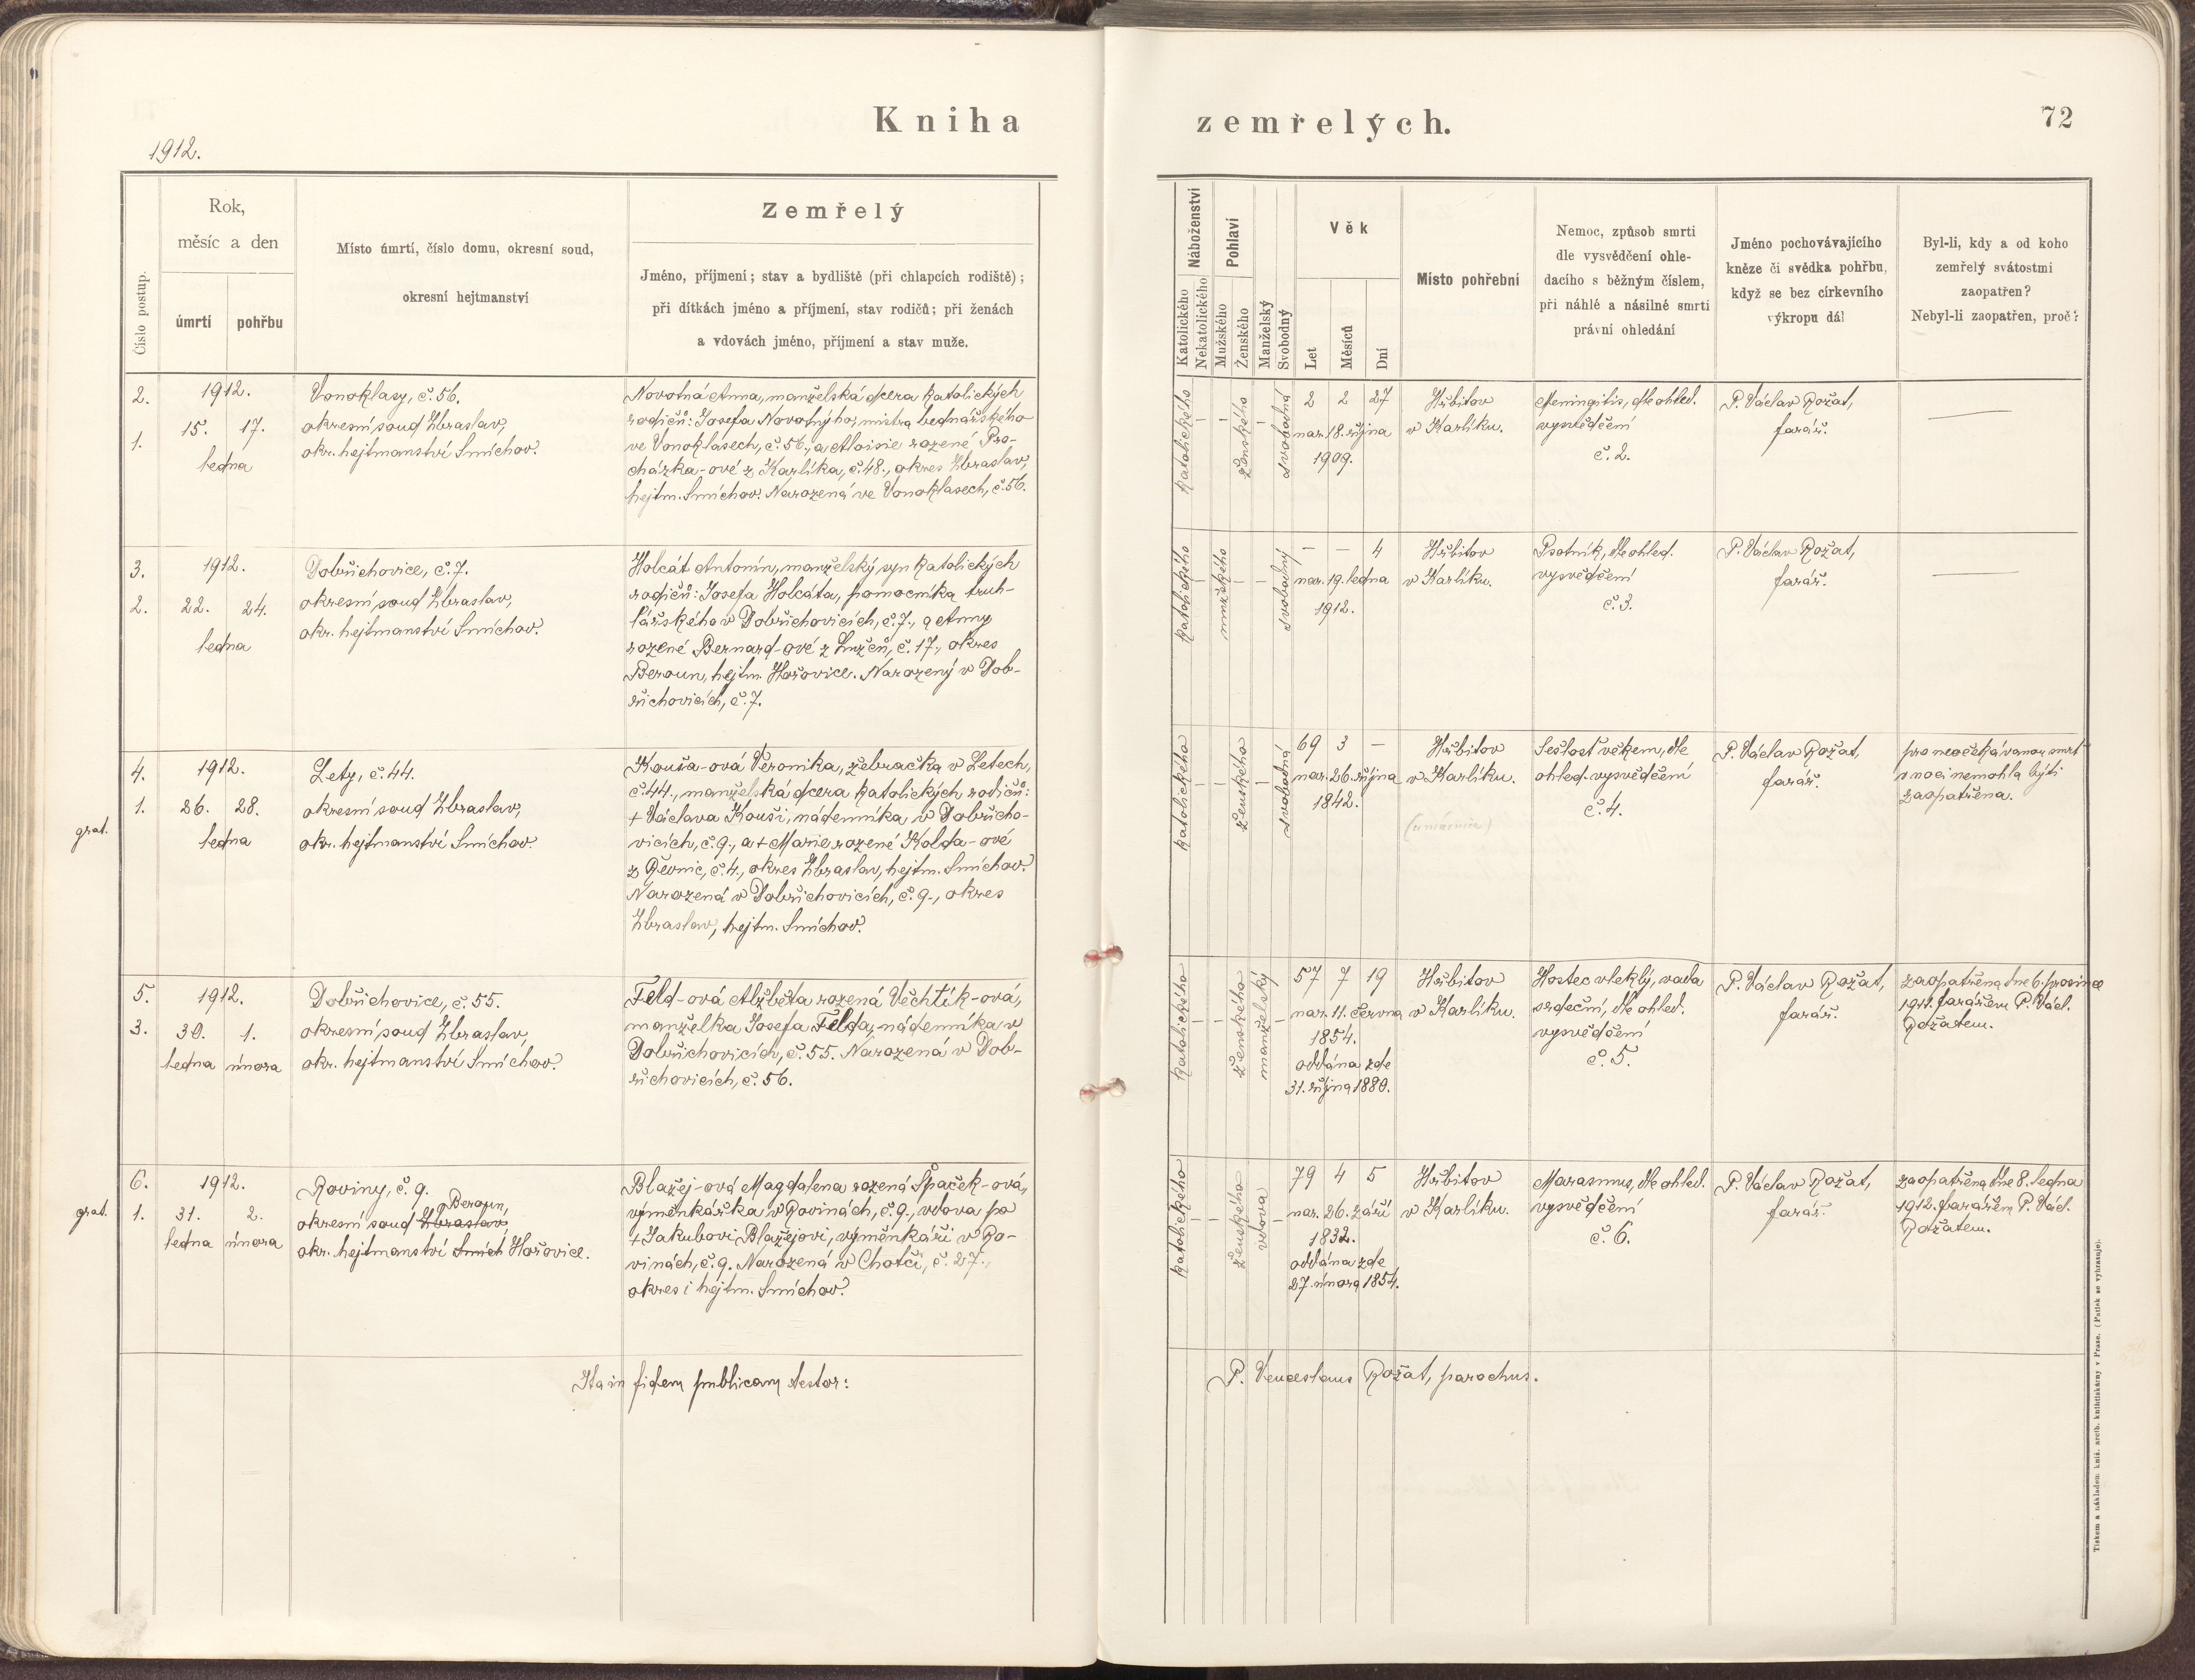 Kniha zemřelých.
72
1912.
Číslo postup.
Rok,
měsíc a den
úmrtí
pohřbu
Místo úmrtí, číslo domu, okresní soud,
okresní hejtmanství
Zemřelý
Jméno, příjmení; stav a bydliště (při chlapcích rodiště);
při dítkách jméno a příjmení, stav rodičů; při ženách
a vdovách jméno, příjmení a stav muže.
Náboženství
Katolického
Nekatolického
Pohlaví
Mužského
Ženského
Manželský
Svobodný
Věk
Let
Měsíců
Dní
Místo pohřební
Nemoc, způsob smrti
dle vysvědčení ohle-
dacího s běžným číslem,
při náhlé a násilné smrti
právní ohledání
Jméno pochovávajícího
kněze či svědka pohřbu,
když se bez církevního
výkropu dál
Byl-li, kdy a od koho
zemřelý svátostmi
zaopatřen?
Nebyl-li zaopatřen, proč?
2.
1.
1912.
15. 17.
ledna
Vonoklasy, č. 56.
okresní soud Zbraslav,
okr. hejtmanství Smíchov.
Novotná Anna, manželská dcera katolických
rodičů: Josefa Novotného, mistra bednářského
ve Vonoklasech, č. 56., a Aloisie rozené Pro-
cházka-ové z Karlíka, č. 48., okres Zbraslav,
hejtm. Smíchov. Narozená ve Vonoklasech, č. 56.
katolického
–
–
ženského
–
svobodná
2 2 27
nar. 18. října
1909.
Hřbitov
v Karlíku.
Meningitis, dle ohled.
vysvědčení
č. 2.
P. Václav Rožat,
farář.
—
3.
2.
1912.
22. 24.
ledna
Dobřichovice, č. 7.
okresní soud Zbraslav,
okr. hejtmanství Smíchov.
Holcát Antonín, manželský syn katolických
rodičů: Josefa Holcáta, pomocníka truh-
lářského v Dobřichovicích, č. 7., a Anny
rozené Bernard-ové z Lužců, č. 17., okres
Beroun, hejtm. Hořovice. Narozený v Dob-
řichovicích, č. 7.
katolického
–
mužského
–
–
svobodný
– – 4
nar. 19. ledna
1912.
Hřbitov
v Karlíku.
Psotník, dle ohled.
vysvědčení
č. 3.
P. Václav Rožat,
farář.
—
grat.
4.
1.
1912.
26. 28.
ledna
Lety, č. 44.
okresní soud Zbraslav,
okr. hejtmanství Smíchov.
Kouša-ová Veronika, žebračka v Letech,
č. 44., manželská dcera katolických rodičů:
+ Václava Kouši, nádenníka v Dobřicho-
vicích, č. 9., a + Marie rozené Kolda-ové
z Řevnic, č. 4., okres Zbraslav, hejtm. Smíchov.
Narozená v Dobřichovicích, č. 9., okres
Zbraslav, hejtm. Smíchov.
katolického
–
–
ženského
–
svobodná
69 3 –
nar. 26. října
1842.
Hřbitov
v Karlíku.
Sešlost věkem, dle
ohled. vysvědčení
č. 4.
P. Václav Rožat,
farář.
pro neočekávanou smrt
v noci nemohla býti
zaopatřena.
5.
3.
1912.
30. 1.
ledna února
Dobřichovice, č. 55.
okresní soud Zbraslav,
okr. hejtmanství Smíchov.
Feld-ová Alžběta rozená Věchtík-ová,
manželka Josefa Felda, nádenníka v
Dobřichovicích, č. 55. Narozená v Dob-
řichovicích, č. 56.
katolického
–
–
ženského
manželský
–
57 7 19
nar. 11. června
1854.
oddána zde
31. října 1880.
Hřbitov
v Karlíku.
Hostec vleklý, vada
srdeční, dle ohled.
vysvědčení
č. 5.
P. Václav Rožat,
farář.
zaopatřena dne 6. prosince
1911. farářem P. Václ.
Rožatem.
grat.
6.
1.
1912.
31. 2.
ledna února
Roviny, č. 9.
Beroun,
okresní soud Zbraslav,
okr. hejtmanství Smích Hořovice.
Blažej-ová Magdalena rozená Špaček-ová,
výměnkářka v Rovinách, č. 9., vdova po
+ Jakubovi Blažejovi, výměnkáři v Ro-
vinách, č. 9. Narozená v Chotči, č. 27.,
okres i hejtm. Smíchov.
katolického
–
–
ženského
vdova
–
79 4 5
nar. 26. září
1832.
oddána zde
27. února 1854.
Hřbitov
v Karlíku.
Marasmus, dle ohled.
vysvědčení
č. 6.
P. Václav Rožat,
farář.
zaopatřena dne 8. ledna
1912. farářem P. Václ.
Rožatem.
Ita in fidem publicam testor:
P. Venceslaus Rožat, parochus.
Tiskem a nákladem kníž. arcib. knihtiskárny v Praze. (Patisk se vyhrazuje).